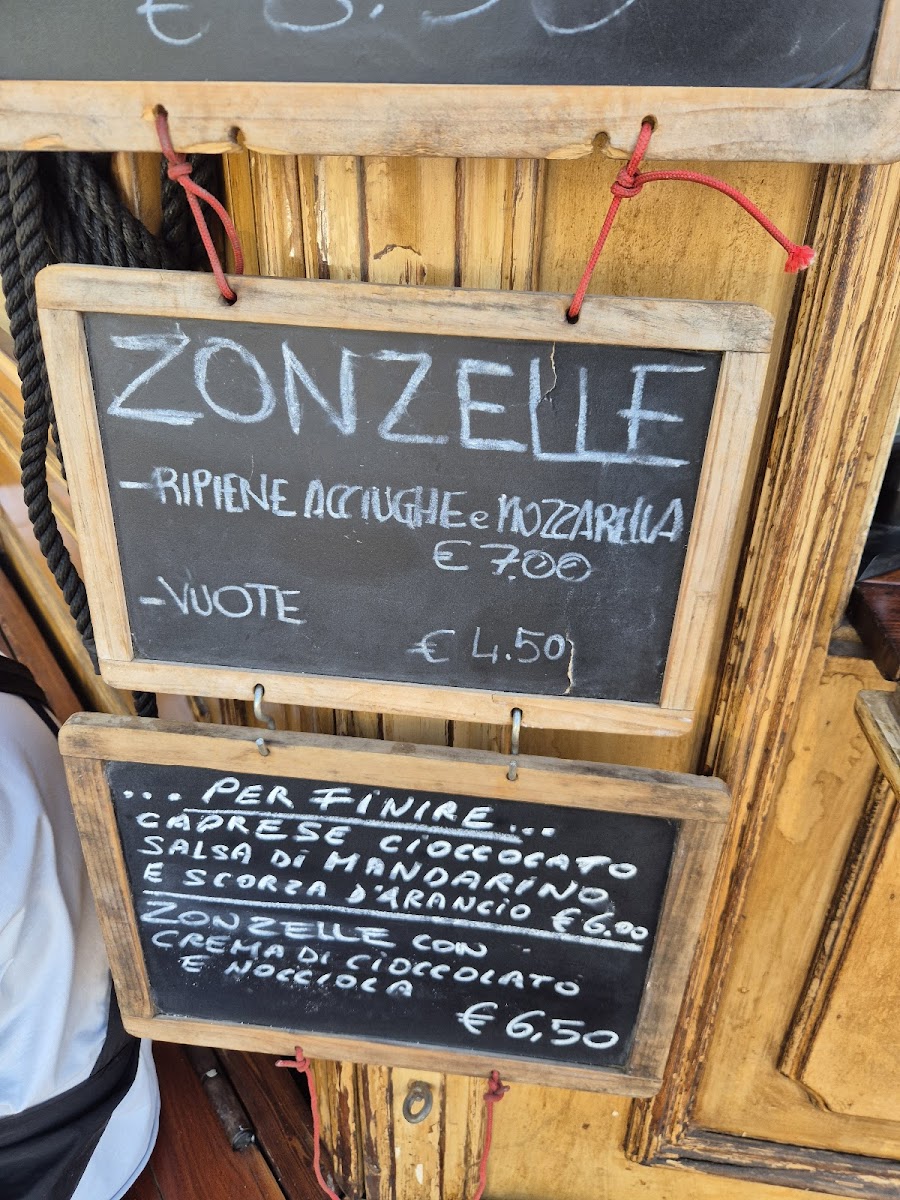 ZONZELLE
-RIPIENE ACCIUGHE e MOZZARELLA
€ 7.00
-VUOTE
€ 4.50
... PER FINIRE ...
CAPRESE CIOCCOCATO
SALSA DI MANDARINO
E SCORZA D'ARANCIO € 6.00
ZONZELLE CON
CREMA DI CIOCCOLATO
E NOCCIOLA
€ 6,50